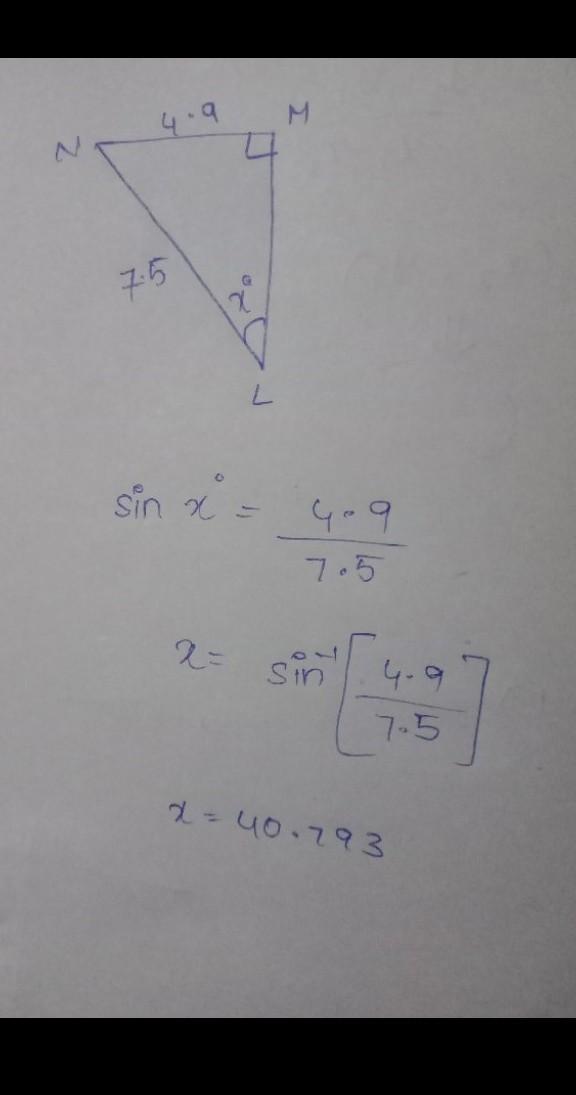 4.9 M
N
7.5
x°
L
sin x° = 4.9
7.5
x = sin⁻¹ [ 4.9
7.5 ]
x = 40.793